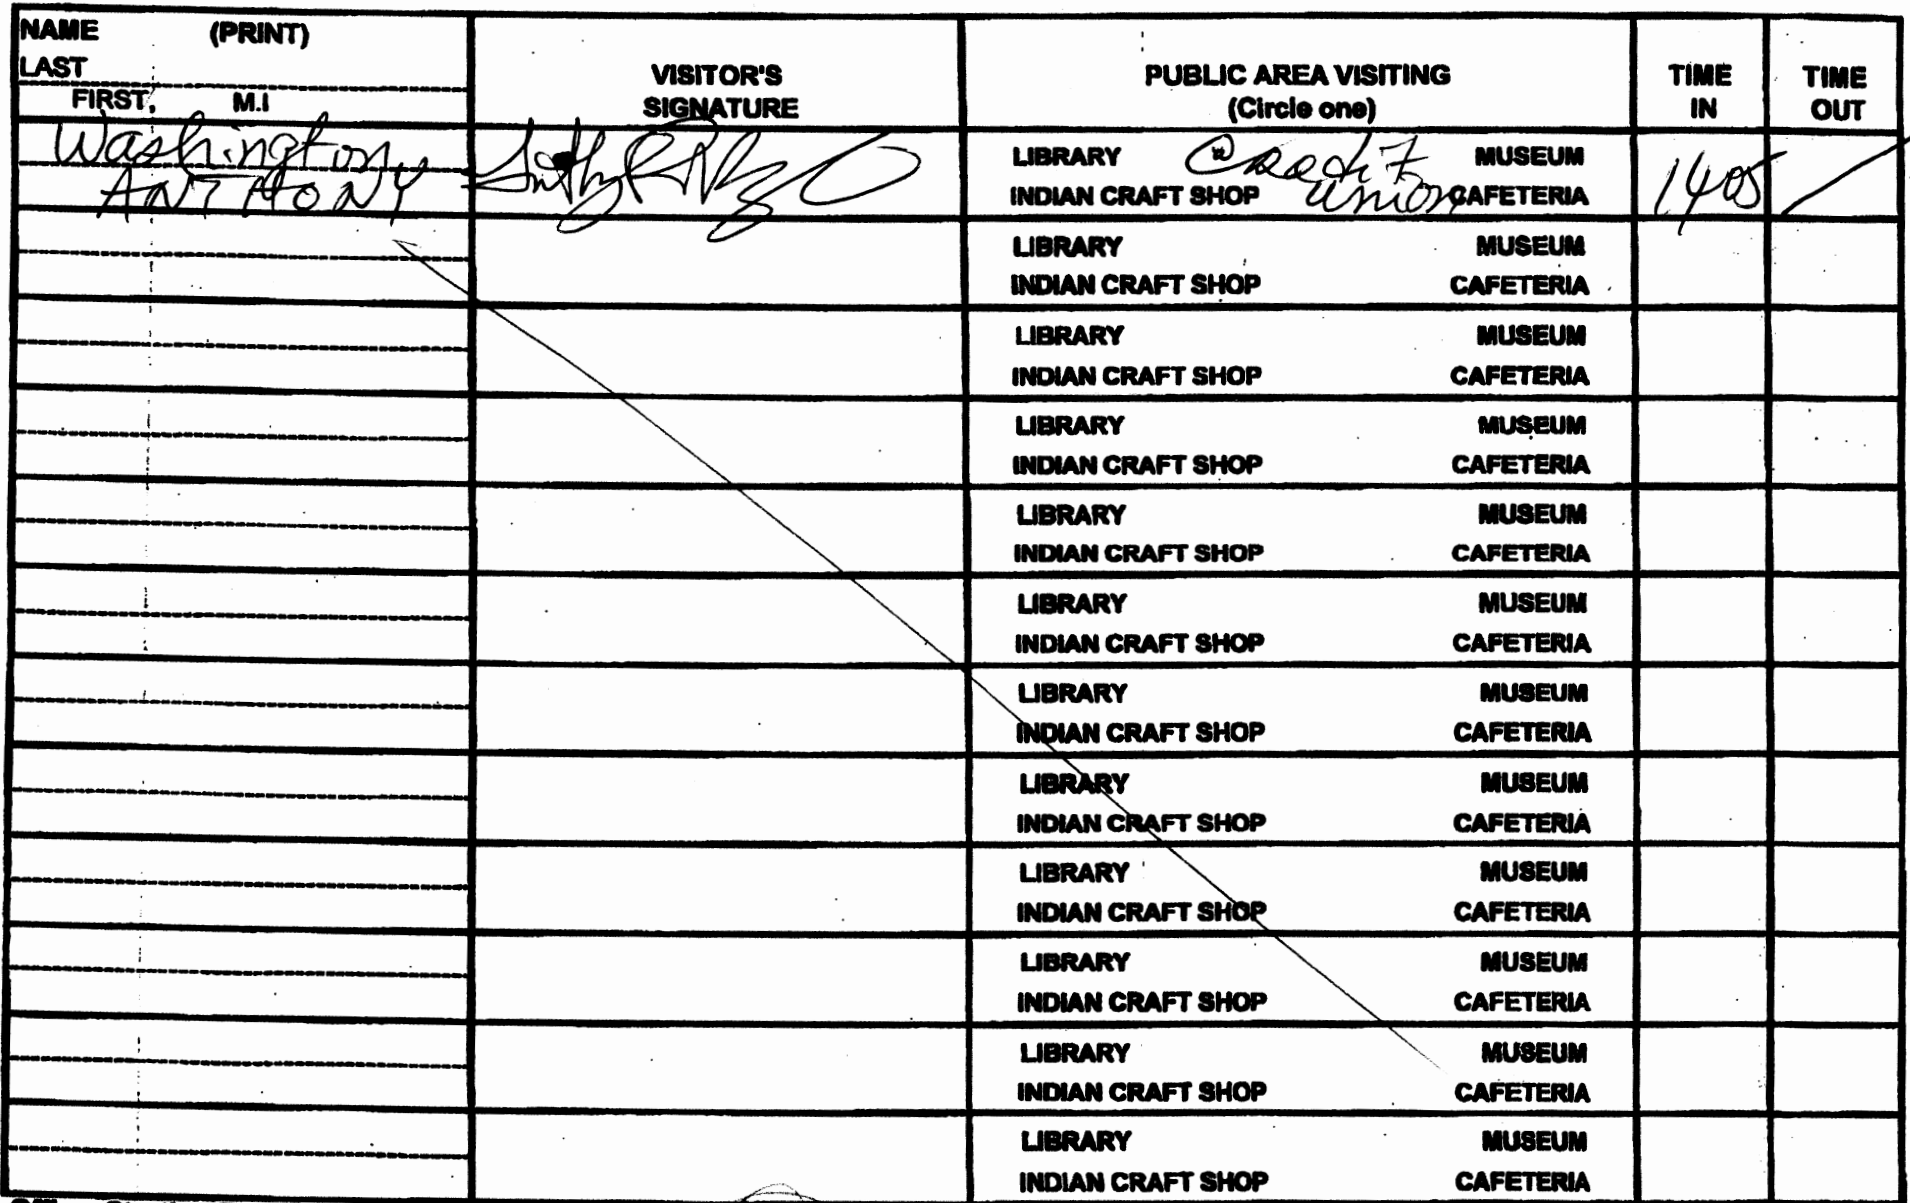 NAME (PRINT)
LAST
FIRST, M.I
VISITOR'S
SIGNATURE
PUBLIC AREA VISITING
(Circle one)
TIME
IN
TIME
OUT
Washington,
ANTHONY
LIBRARY Credit MUSEUM
INDIAN CRAFT SHOP union CAFETERIA
1405
LIBRARY MUSEUM
INDIAN CRAFT SHOP CAFETERIA
LIBRARY MUSEUM
INDIAN CRAFT SHOP CAFETERIA
LIBRARY MUSEUM
INDIAN CRAFT SHOP CAFETERIA
LIBRARY MUSEUM
INDIAN CRAFT SHOP CAFETERIA
LIBRARY MUSEUM
INDIAN CRAFT SHOP CAFETERIA
LIBRARY MUSEUM
INDIAN CRAFT SHOP CAFETERIA
LIBRARY MUSEUM
INDIAN CRAFT SHOP CAFETERIA
LIBRARY MUSEUM
INDIAN CRAFT SHOP CAFETERIA
LIBRARY MUSEUM
INDIAN CRAFT SHOP CAFETERIA
LIBRARY MUSEUM
INDIAN CRAFT SHOP CAFETERIA
LIBRARY MUSEUM
INDIAN CRAFT SHOP CAFETERIA